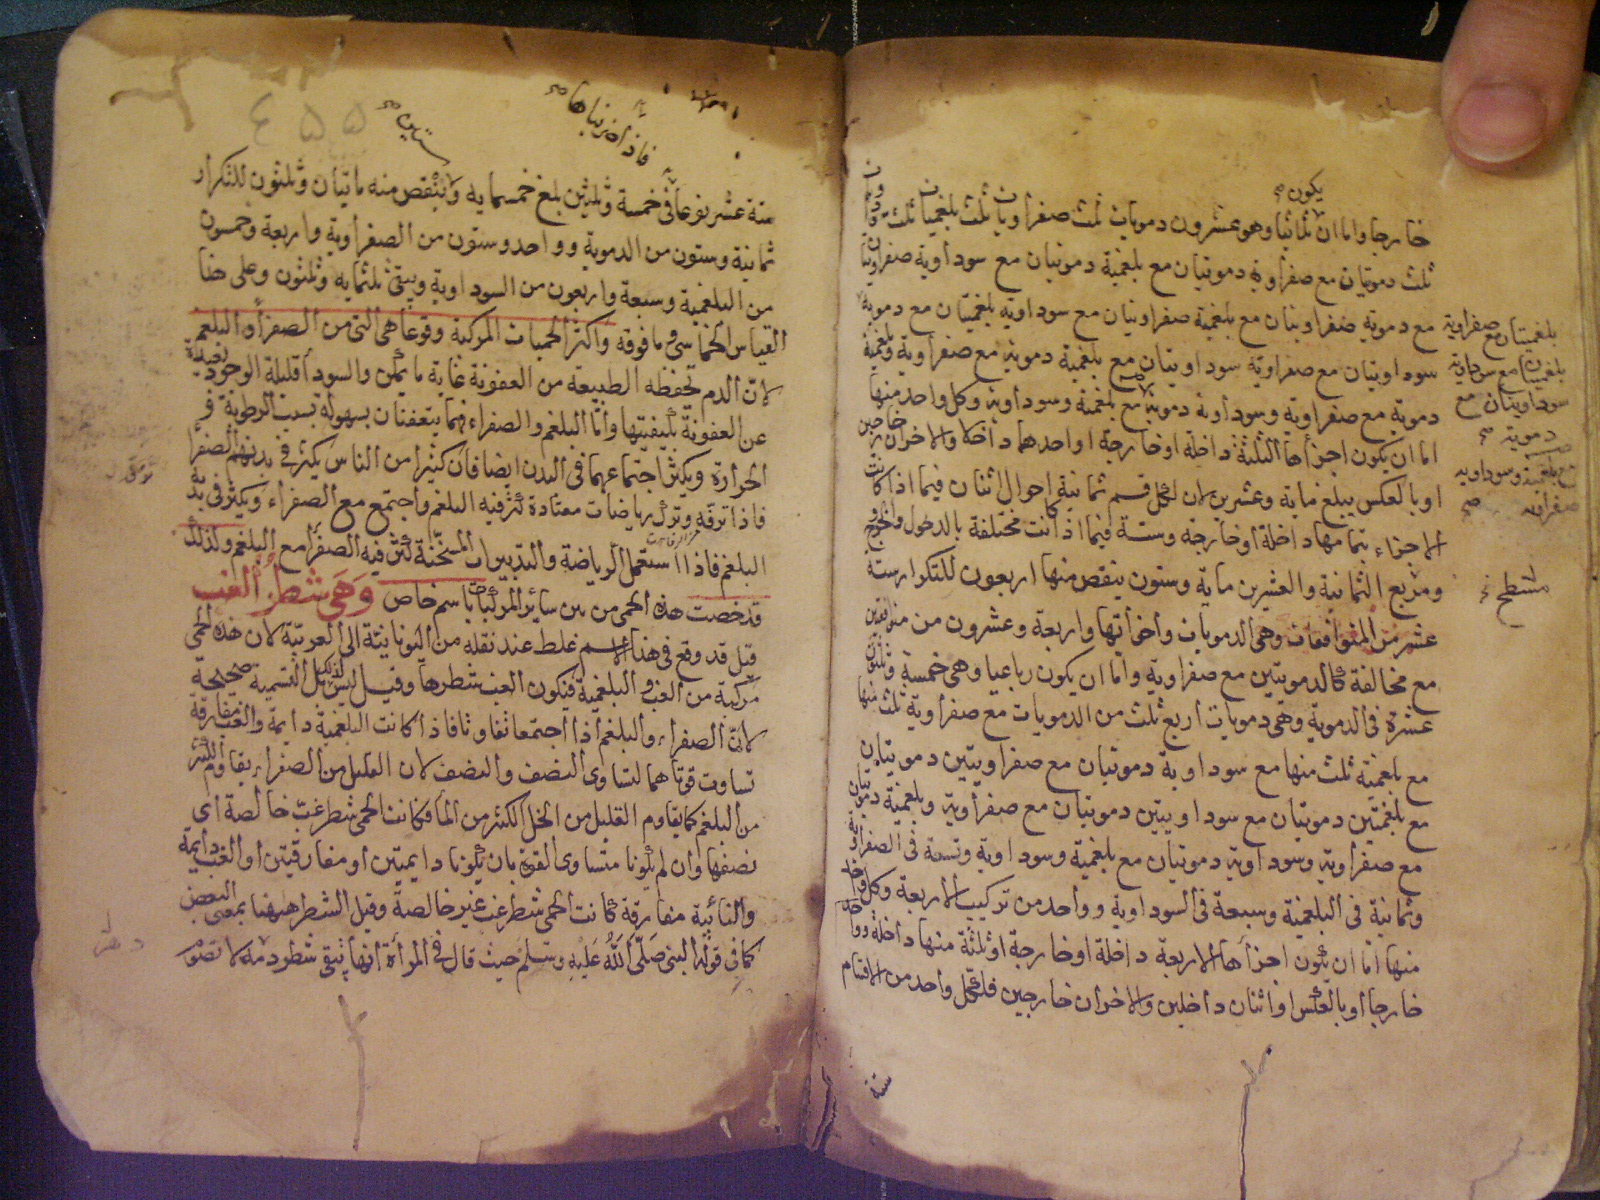 يكون صح
خارجا واما ان ثلاثيا وهو عشرون دمويات ثلث صفراويات ثلث بلغميات ثلث
ثلث دمويتان مع صفراوية دمويتان مع بلغمية دمويتان مع سوداوية صفراويتان
مع دموية صفراويتان مع بلغمية صفراويتان مع سوداوية بلغميتان مع دموية
سوداويتان مع صفراوية سوداويتان مع بلغمية دموية مع صفراوية وبلغمية
دموية مع صفراوية وسوداوية دموية مع بلغمية وسوداوية وكل واحد منها
اما ان يكون اجزأها الثلثة داخلة او خارجة او احدها داخلا والاخران خارجين
او بالعكس يبلغ ماية وعشرين لان لكل قسم ثمانية احوال اثنان فيما اذا كانت
الاجزاء بتمامها داخلة او خارجة وستة فيما اذا كانت مختلفة بالدخول والخروج
ومربع الثمانية والعشرين ماية وستون ينقص منها اربعون للتكرار ستة
عشر من المتوافقات وهي الدمويات واخواتها واربعة وعشرون من متوافقتين
مع مخالفة كالدمويتين مع صفراوية واما ان يكون رباعيا وهي خمسة وثلثون
عشرة في الدموية وهي دمويات اربع ثلث من الدمويات مع صفراوية ثلث منها
مع بلغمية ثلث منها مع سوداوية دمويتان مع صفراويتين دمويتان
مع بلغميتين دمويتان مع سوداويتين دمويتان مع صفراوية وبلغمية دمويتان
مع صفراوية وسوداوية دمويتان مع بلغمية وسوداوية وتسعة في الصفراوية
وثمانية في البلغمية وسبعة في السوداوية وواحد من تركيب الاربعة وكل واحد
منها اما ان يكون اجزأها الاربعة داخلة او خارجة او ثلثة منها داخلة وواحد
خارجا او بالعكس او اثنان داخلين والاخران خارجين فلكل واحد من الاقسام
ستة
بلغميتان مع صفراوية
بلغميتان مع سوداوية
سوداويتان مع
دموية صح
مع بلغمية وسوداوية
صفراوية صح
مسطح
فاذا ضربناها صح
ستين صح
٤٥٥
ستة عشر نوعا في خمسة وثلثين بلغ خمسمايه وينقص منه مايتان وثلثون للتكرار
ثمانية وستون من الدموية وواحد وستون من الصفراوية واربعة وخمسون
من البلغمية وسبعة واربعون من السوداوية ويبقى ثلثمايه وثلثون وعلى هذا
القياس الخماسي وما فوقه واكثر الحميات المركبة وقوعا هي التي من الصفرأ والبلغم
لان الدم تحفظه الطبيعة من العفونة غاية ما يمكن والسودا قليلة الوجود بعيدة
عن العفونة بكيفيتها واما البلغم والصفراء فهما يتعفنان بسهولة بسبب الرطوبة و
الحرارة ويكثر اجتماعهما في البدن ايضا فان كثيرا من الناس يكثر في بدنهم الصفرا
فاذا ترفه وترك رياضات معتادة كثر فيه البلغم واجتمع مع الصفراء ويكثر في بدنه
البلغم فاذا استعمل الرياضة والتدبيرات المسخنة كثر فيه الصفرا مع البلغم ولذلك
قد خصت هذه الحمى من بين سائر المركبات باسم خاص وهي شطر الغب
قيل قد وقع في هذا الاسم غلط عند نقله من اليونانية الى العربية لان هذه الحمى
مركبة من الغب والبلغمية فيكون الغب شطرها وقيل ليس كذلك بل التسمية صحيحة
لان الصفراء والبلغم اذا اجتمعا تقاوتا فاذا كانت البلغمية دايمة والغب مفارقة
تساوت قوتاهما لتساوى النصف والنصف لان القليل من الصفراء يقاوم الكثير
من البلغم كما يقاوم القليل من الخل الكثير من الما فكانت الحمى شطر غب خالصة اى
نصفها وان لم يكونا متساوى القوة بان يكونا دايمتين او مفارقتين او الغب دايمة
والنائبة مفارقة كانت الحمى شطر غب غير خالصة وقيل الشطر ههنا بمعنى البعض
كما في قول النبي صلى الله عليه وسلم حيث قال في المرأة انها تبقى شطر دهرها لا تصوم